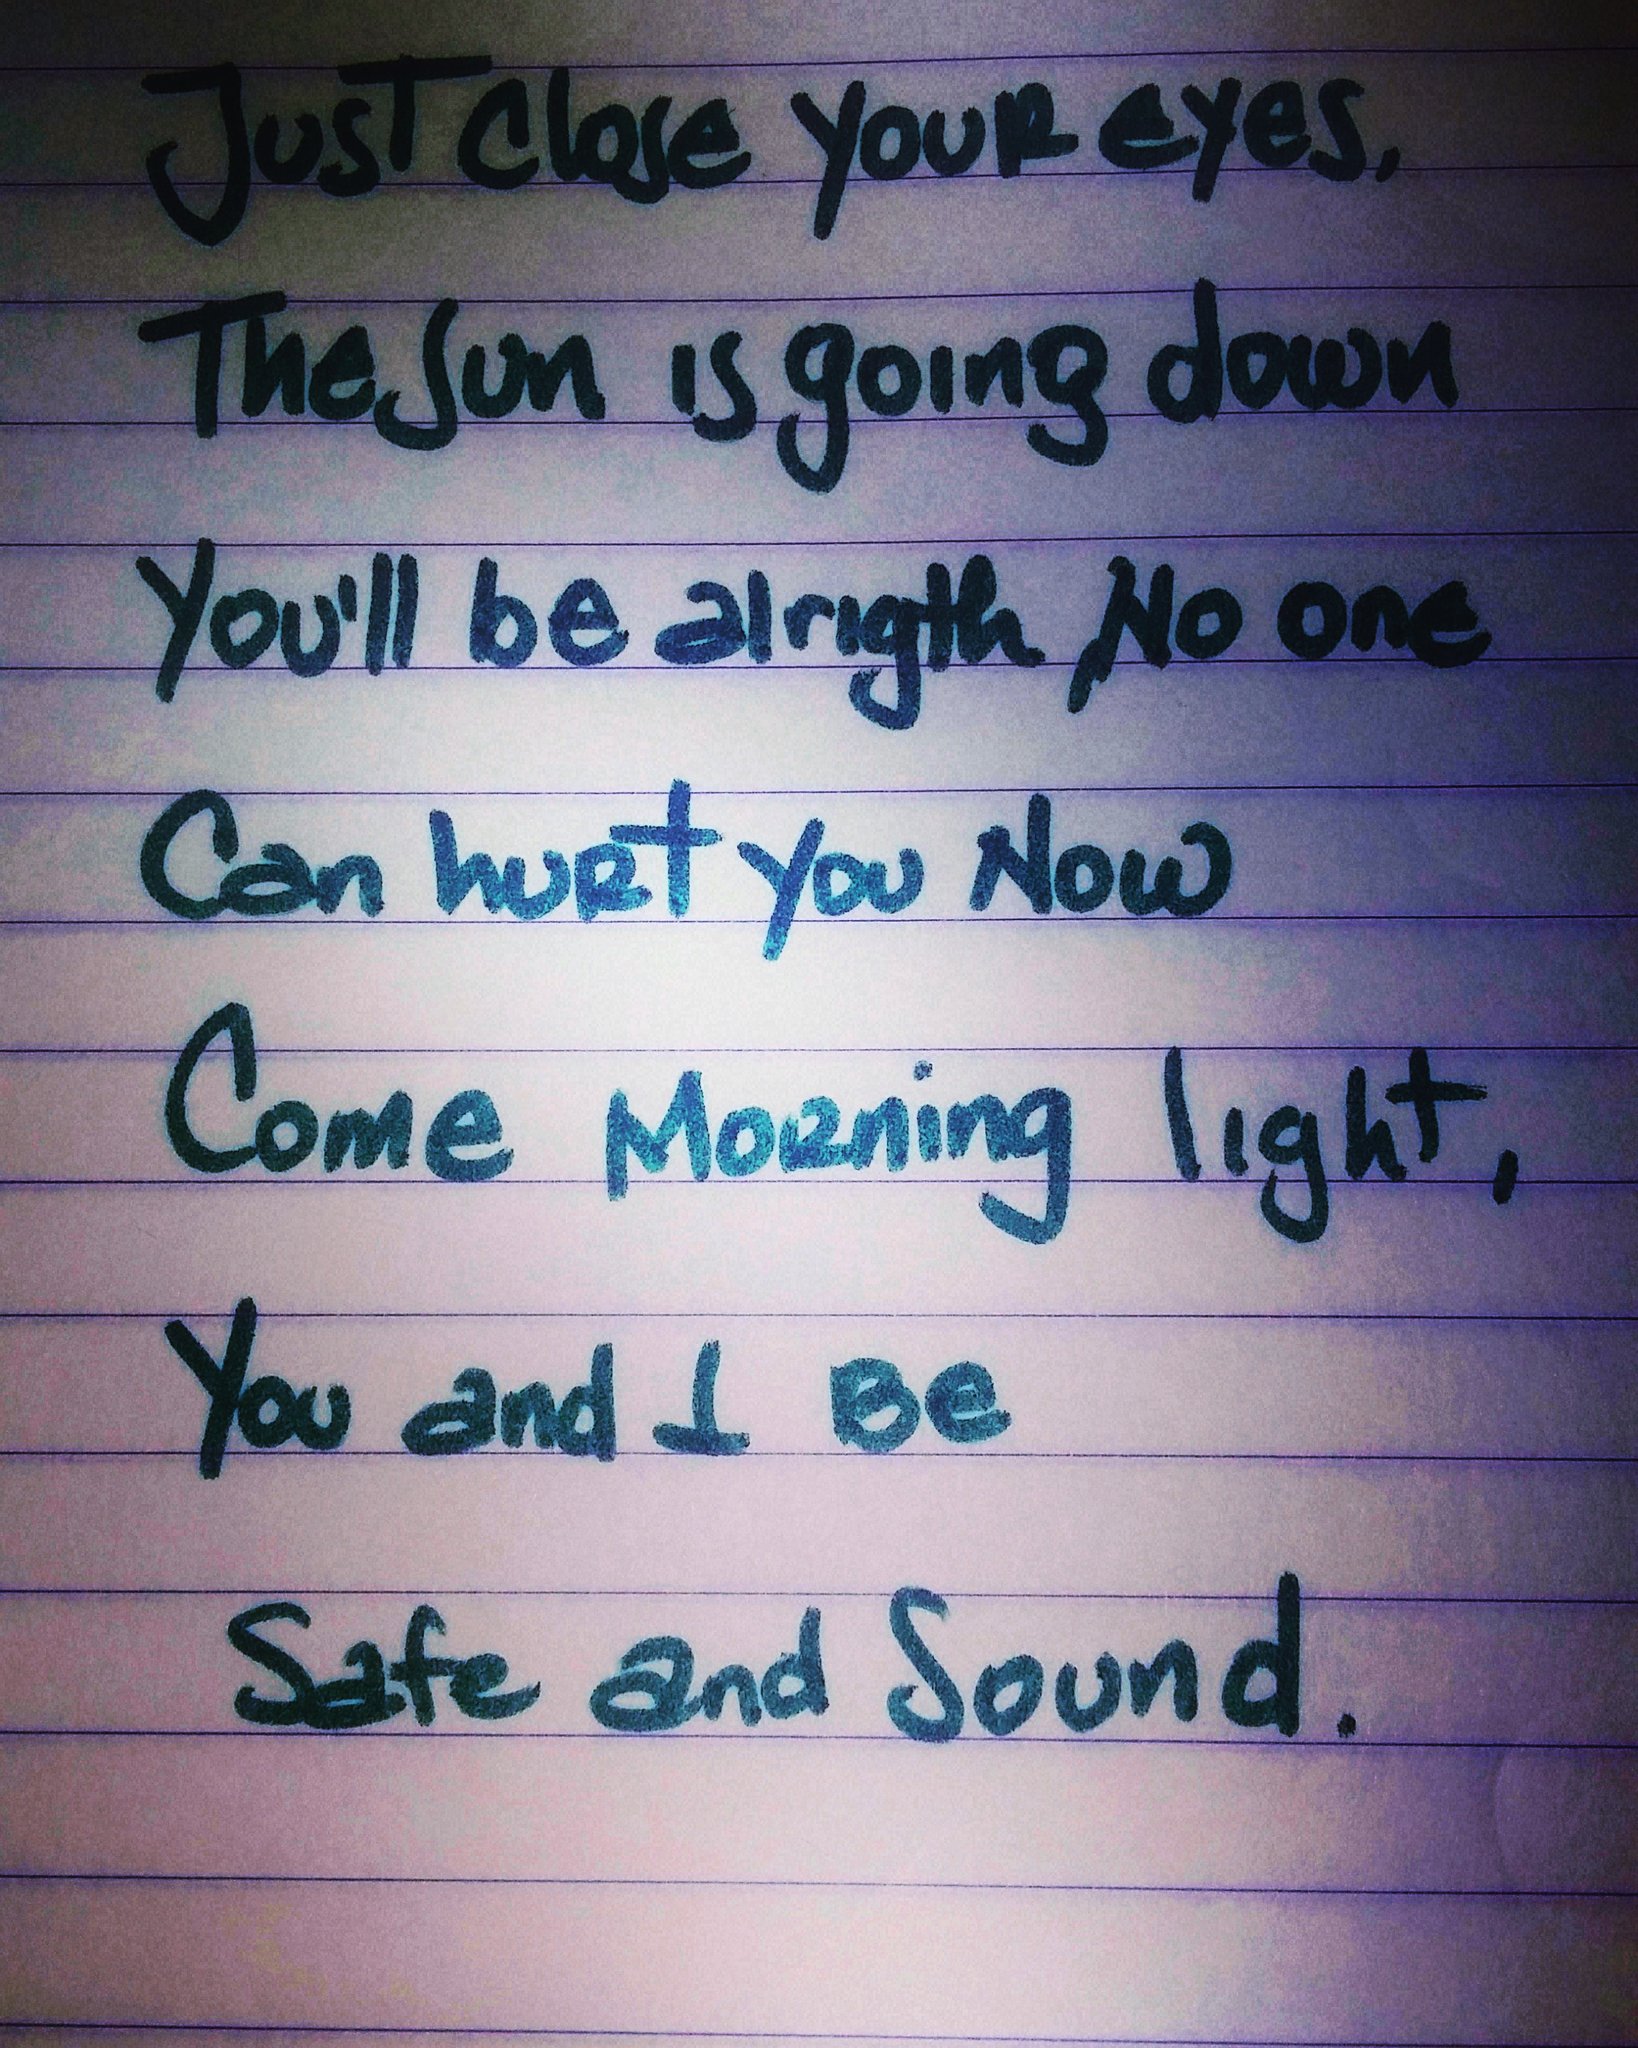 Just close your eyes,
The sun is going down
You'll be alrigth No one
Can hurt you Now
Come Morning light,
You and I Be
Safe and Sound.